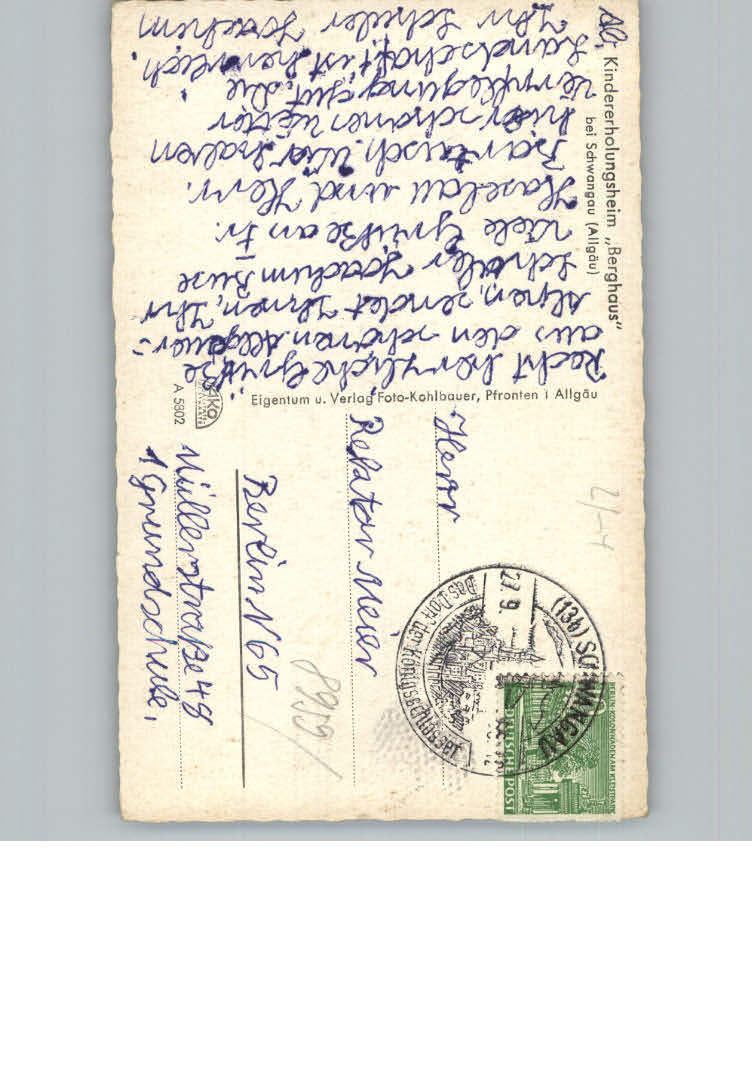 Kindererholungsheim „Berghaus"
bei Schwangau (Allgäu)
Recht herzliche Grüße
aus den schönen Allgäuer-
Alpen, sendet Ihnen, Ihr
Schüler Joachim Buse
Viele Grüße an Fr.
Haselau und Herr.
Bartusch. Wir haben
hier schönes Wetter
Verpflegung gut, die
Landschaft ist herrlich.
Ihr Schüler Joachim
Eigentum u. Verlag Foto-Kohlbauer, Pfronten i Allgäu
A 5802
Herr
Rektor Meier
Berlin N 65
Müllerstraße 48
1 Grundschule,
(13b) SCHWANGAU
27. 9.
Das Dorf der Königsschlösser
DEUTSCHE POST
8959